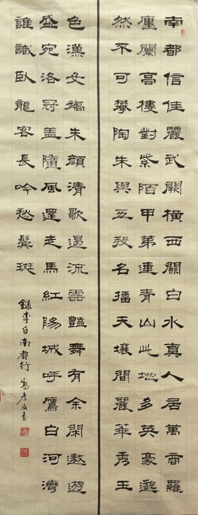 南都信佳麗武闕橫西關白水真人居萬商羅
廛闤高樓對紫陌甲第連青山此地多英豪邈
然不可攀陶朱與五羖名播天壤間麗華秀玉
色漢女嬌朱顏清歌遏流雲豔舞有余閑遨遊
盛宛洛冠蓋隨風還走馬紅陽城呼鷹白河灣
誰識臥龍客長吟愁鬢斑
錄李白南都行